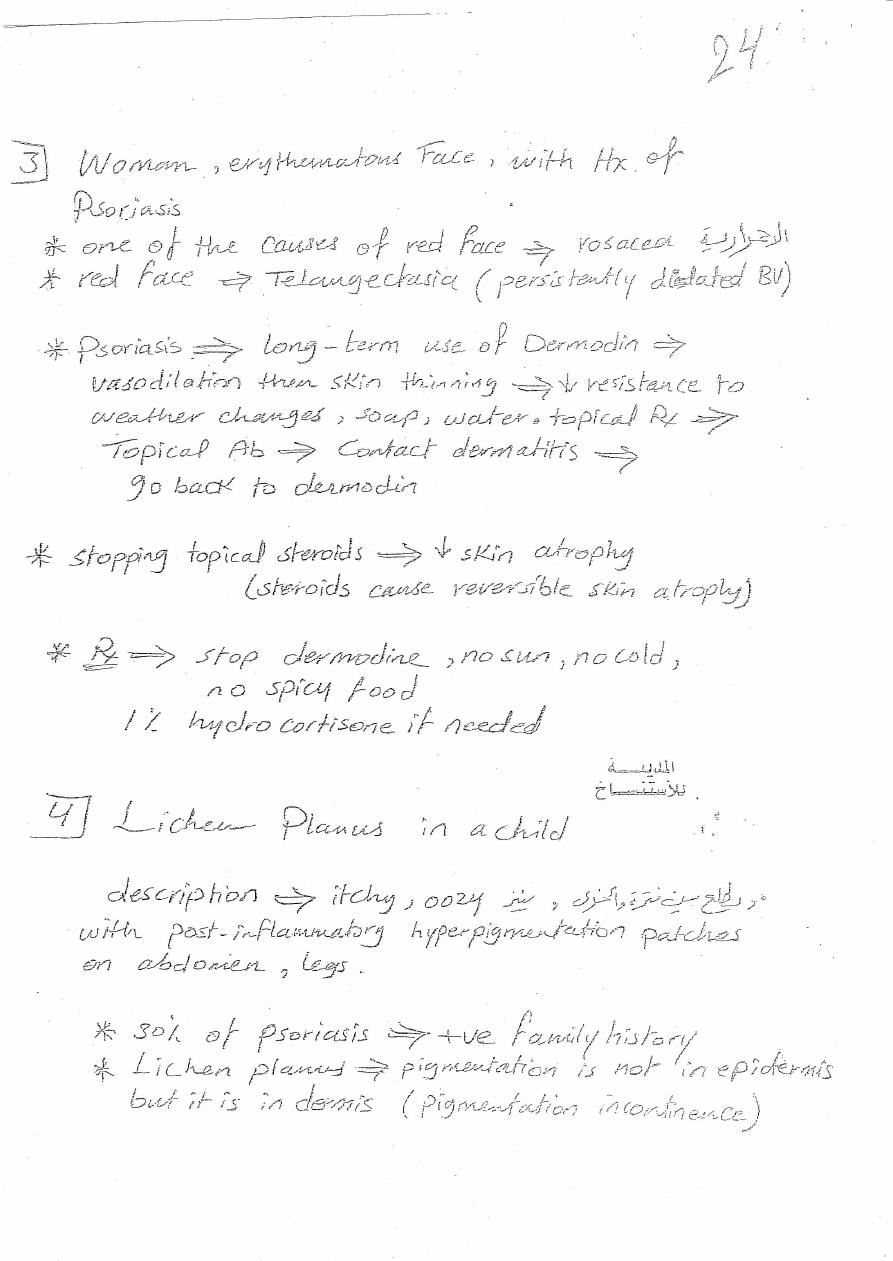 24
3] Woman, erythematous Face, with Hx. of
Psoriasis
* one of the causes of red face ⇒ rosacea
* red face ⇒ Telangectasia (persistently dilated BV)
* Psoriasis ⇒ long-term use of Dermodin ⇒
vasodilation then skin thinning ⇒ ↓ resistance to
weather changes, soap, water. topical Rx ⇒
Topical Ab ⇒ Contact dermatitis ⇒
go back to dermodin
* stopping topical steroids ⇒ ↓ skin atrophy
(steroids cause reversible skin atrophy)
* Rx ⇒ stop dermodine, no sun, no cold,
no spicy food
1% hydrocortisone if needed
المدينة
للأستنساخ
4] Lichen Planus in a child
description ⇒ itchy, oozy
with post-inflammatory hyperpigmentation patches
on abdomen, legs.
* 30% of psoriasis ⇒ +ve family history
* Lichen planus ⇒ pigmentation is not in epidermis
but it is in dermis (pigmentation incontinence)